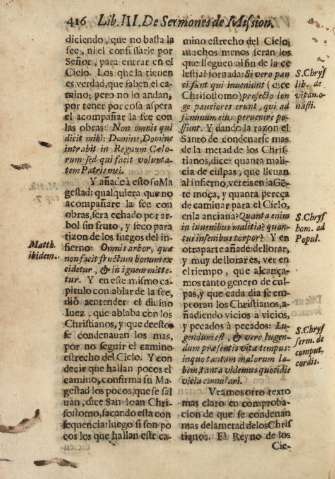 416 Lib. III. De Sermones de Mission.
diciendo, que no basta la
fee, ni el confiarse por
Señor, para entrar en el
Cielo. Los que la tienen
es verdad, que saben el ca-
mino, pero no le andan,
por tener por cosa aspera
el acompañar la fee con
las obras: Non omnis qui
dicit mihi: Domine, Domine
intrabit in Regnum Cælo-
rum sed qui facit volunta-
tem Patris mei.
Y añade à esto su Ma
gestad: qualquiera que no
acompañare la fee con
obras, sera echado por ar-
bol sin fruto, y seco para
tizon de los fuegos del in-
fierno: Omnis arbor, quæ
non facit fructum bonum ex
cidetur, & in ignem mitte-
tur. Y en este mismo ca-
pitulo con ablar de la fee,
diò sentender el diuino
Iuez, que ablaba con los
Christianos, y que de estos
se condenauan los mas,
por no seguir el camino
estrecho del Cielo. Y con
decir que hallan pocos el
camino, confirma su Ma
gestad los pocos, que se sal
uan, dice San Ioan Chri-
sostomo, sacando esta con
sequencia: luego si son po
cos los que hallan este ca-
Matth.
ibidem.
mino estrecho del Cielo,
muchos menos seràn los
que lleguen al fin de la ce
lestial jornada: Si vero pau
ci sunt qui inueniunt (dice
Chrisostomo) profecto lon-
ge pauciores erunt, qui ad
terminum eius peruenire pos-
sunt. Y dando la razon el
Santo de condenarse mas
de la metad de los Chris-
tianos, dice: quanta mali-
cia de culpas, que lleuan
al infierno, vereis en la Gē-
te moça, y quanta pereça
de caminar para el Cielo,
en la anciana: Quanta enim
in iuuenibus malitia? quan-
tus in senibus torpor? Y en
otra parte añade de llorar,
y muy de llorar es, ver en
el tiempo, que alcança-
mos tanto genero de cul-
pas, y que cada dia se em-
peoran los Christianos, a-
ñadiendo vicios a vicios,
y pecados à pecados: Lu-
gendum est, & vere lugen-
dum præsentis vitæ tempus:
in quo tantum malorum la-
bem tanta videmus quotidie
vicia cumulari.
Veamos otro texto
mas claro en comproba-
cion de que se condenan
mas de la metad de los Chris
tianos. El Reyno de los
Cie-
S. Chrys
lib. de
vit.
S. Chrys
hom. ad
Popul.
S. Chrys
serm. de
comput.
cordit.